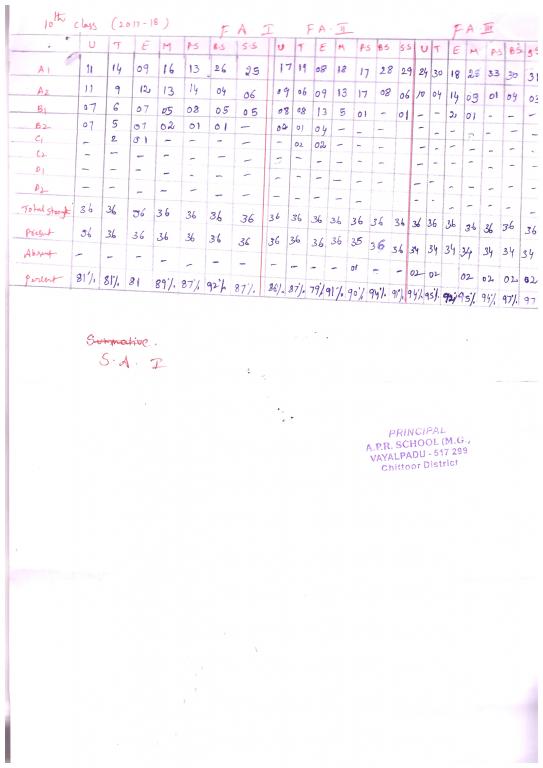 10th class (2017-18) F A I FA-II FA III
U T E M P.S B.S S.S U T E M P.S B.S S.S U T E M P.S B.S S.S
A1 11 14 09 16 13 26 25 17 19 08 18 17 28 29 24 30 18 25 33 30 31
A2 11 9 12 13 14 04 06 09 06 09 13 17 08 06 10 04 14 09 01 04 03
B1 07 6 07 05 08 05 05 08 08 13 5 01 - 01 - - 2 01 - - -
B2 07 5 07 02 01 01 - 02 01 04 - - - - - - - - - - -
C1 - 2 01 - - - - - 02 02 - - - - - - - - - - -
C2 - - - - - - - - - - - - - - - - - - - - -
D1 - - - - - - - - - - - - - - - - - - - - -
D2 - - - - - - - - - - - - - - - - - - - - -
Total strength 36 36 36 36 36 36 36 36 36 36 36 36 36 36 36 36 36 36 36 36 36
Present 36 36 36 36 36 36 36 36 36 36 36 35 36 36 34 34 34 34 34 34 34
Absent - - - - - - - - - - - 01 - - 02 02 02 02 02 02
Percent 81% 81% 81 89% 87% 92% 87% 86% 87% 79% 91% 90% 94% 91% 94% 95% 92% 95% 94% 97% 97
Summative.
S. A. I
PRINCIPAL
A.P.R. SCHOOL (M.G.,
VAYALPADU - 517 299
Chittoor District